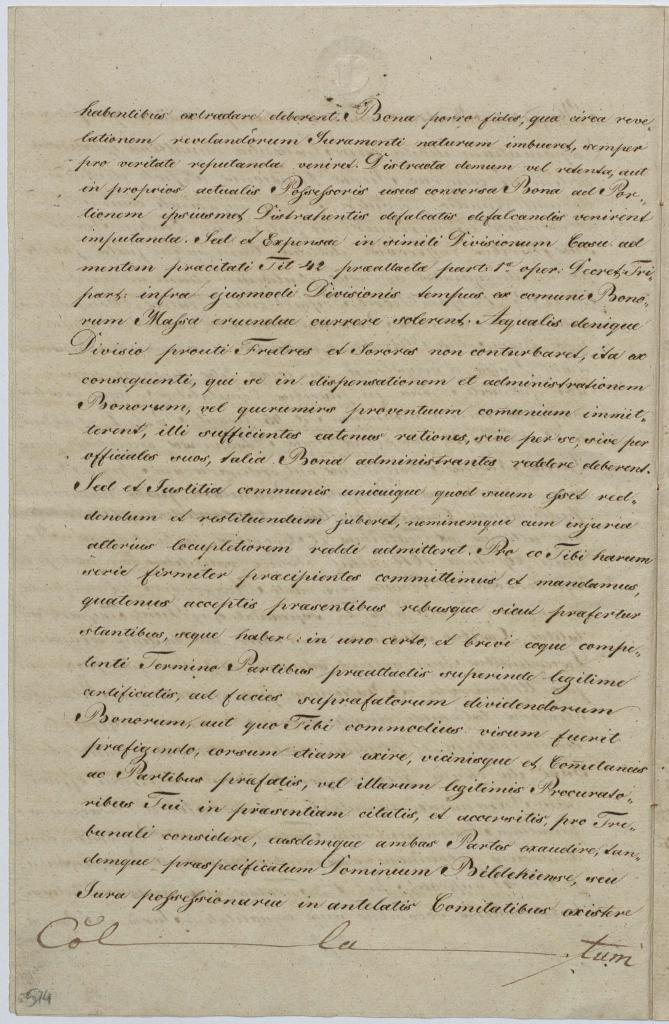 habentibus extradare deberent. Bona porro fides, qua circa reve-
lationem revelandorum Juramenti naturam imbueret, semper
pro veritate reputanda veniret. Distracta demum vel retenta, aut
in proprios actualis Possessoris usus conversa Bona ad Por-
tionem ipsiusmet Distrahentis defalcatis defalcandis venirent
imputanda. Sed et Expensae in simili Divisionum Casu ad
mentem praecitati Tit 42 praeattacta part: 1ae oper: Decret: Tri
part: infra ejusmodi Divisionis tempus ex comuni Bono-
rum Massa eruendae currere solerent. Aequalis denique
Divisio prouti Fratres et Sorores non conturbaret, ita ex
consequenti, qui se in dispensationem et administrationem
Bonorum, vel quorumvis proventuum comunium immit-
terent, illi sufficientes eatenus rationes, sive per se, sive per
officiales suos, talia Bona administrantes reddere deberent.
Sed et Justitia communis unicuique quod suum esset red-
dendum et restituendum juberet, neminemque cum injuria
alterius locupletiorem reddi admitteret. Pro eo Tibi harum
serie firmiter praecipientes committimus et mandamus,
quatenus acceptis praesentibus rebusque sicut praefertur
stantibus, seque haben: in uno certo, et brevi eoque compe-
tenti Termino Partibus praeattactis superinde legitime
certificatis, ad facies suprafatorum dividendorum
Bonorum, aut quo Tibi commodius visum fuerit
praefigendo, eorsum etiam exire, vicinisque et Cometaneis
ac Partibus praefatis, vel illarum legitimis Procurato-
ribus Tui in praesentiam citatis, et accersitis, pro Tri-
bunali considere, easdemque ambas Partes exaudire, tan-
demque praespecificatum Dominium Bildehiense, seu
Jura possessionaria in antelatis Comitatibus existere
Col la tum
574